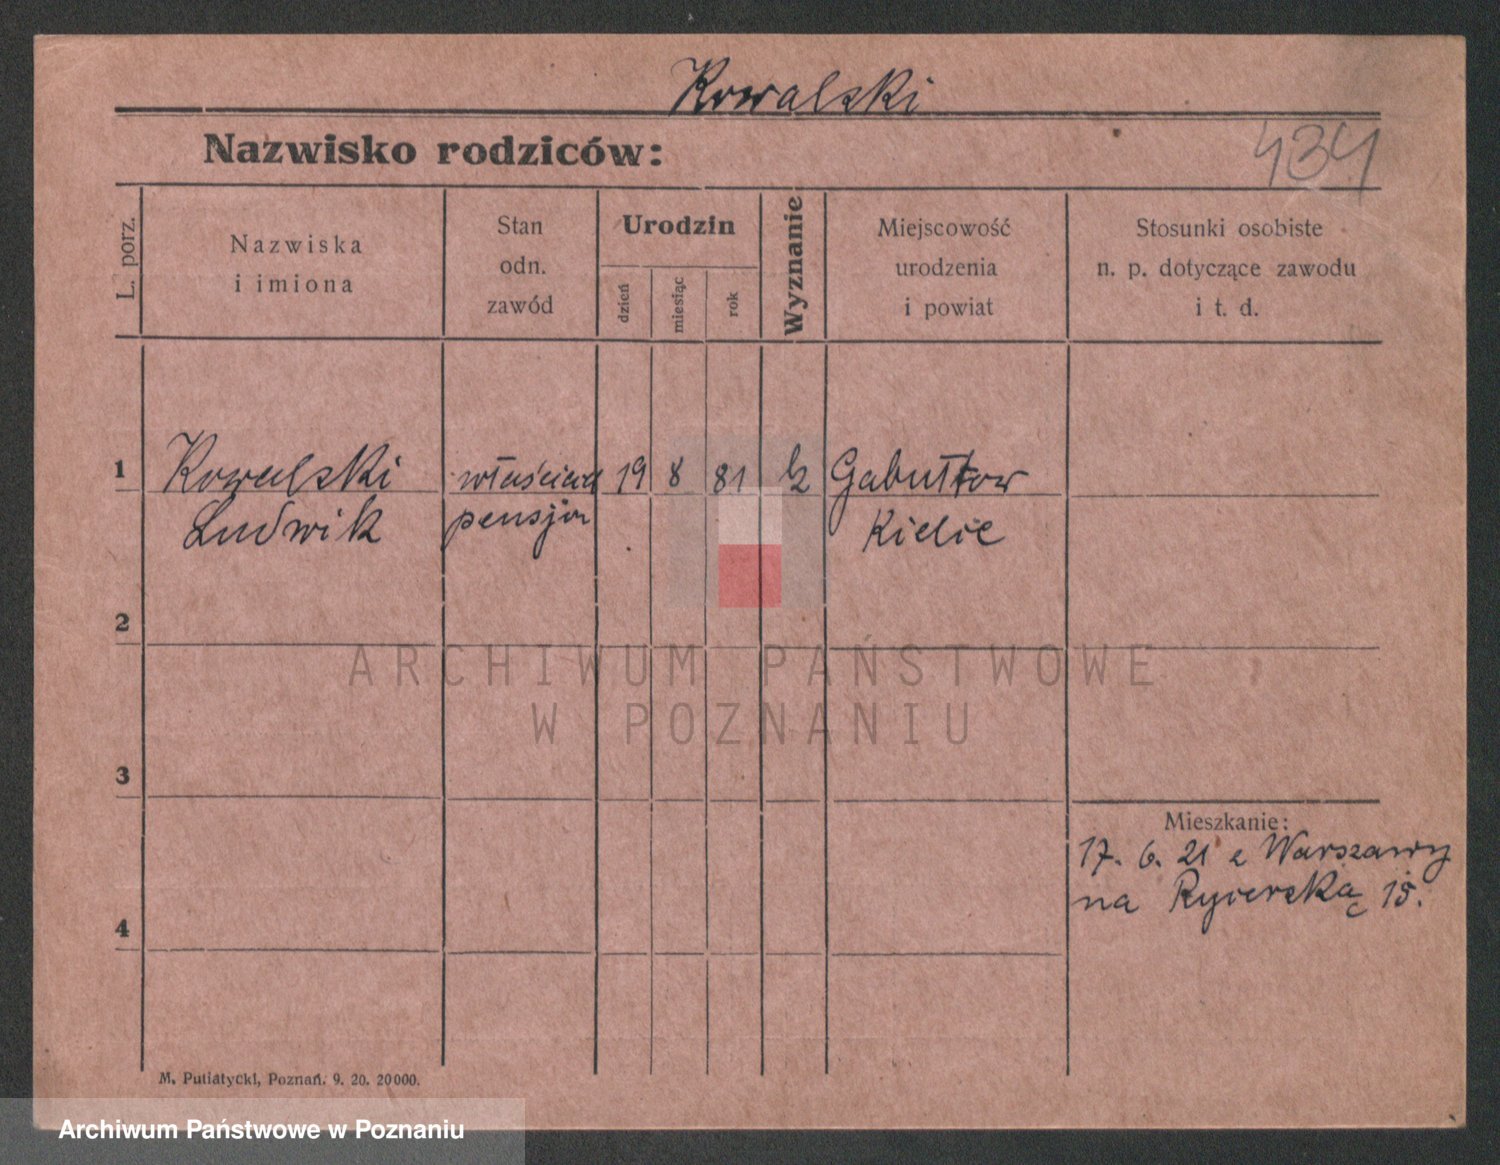 Kowalski
Nazwisko rodziców:
434
L. porz.
Nazwiska
i imiona
Stan
odn.
zawód
Urodzin
dzień
miesiąc
rok
Wyznanie
Miejscowość
urodzenia
i powiat
Stosunki osobiste
n. p. dotyczące zawodu
i t. d.
1
Kowalski
Ludwik
właściciel
pensjon
19
8
81
Gabułtow
Kielce
2
3
4
ARCHIWUM PAŃSTWOWE
W POZNANIU
Mieszkanie:
17. 6. 21 z Warszawy
na Rycerską 15.
M. Putiatycki, Poznań. 9. 20. 20000.
Archiwum Państwowe w Poznaniu